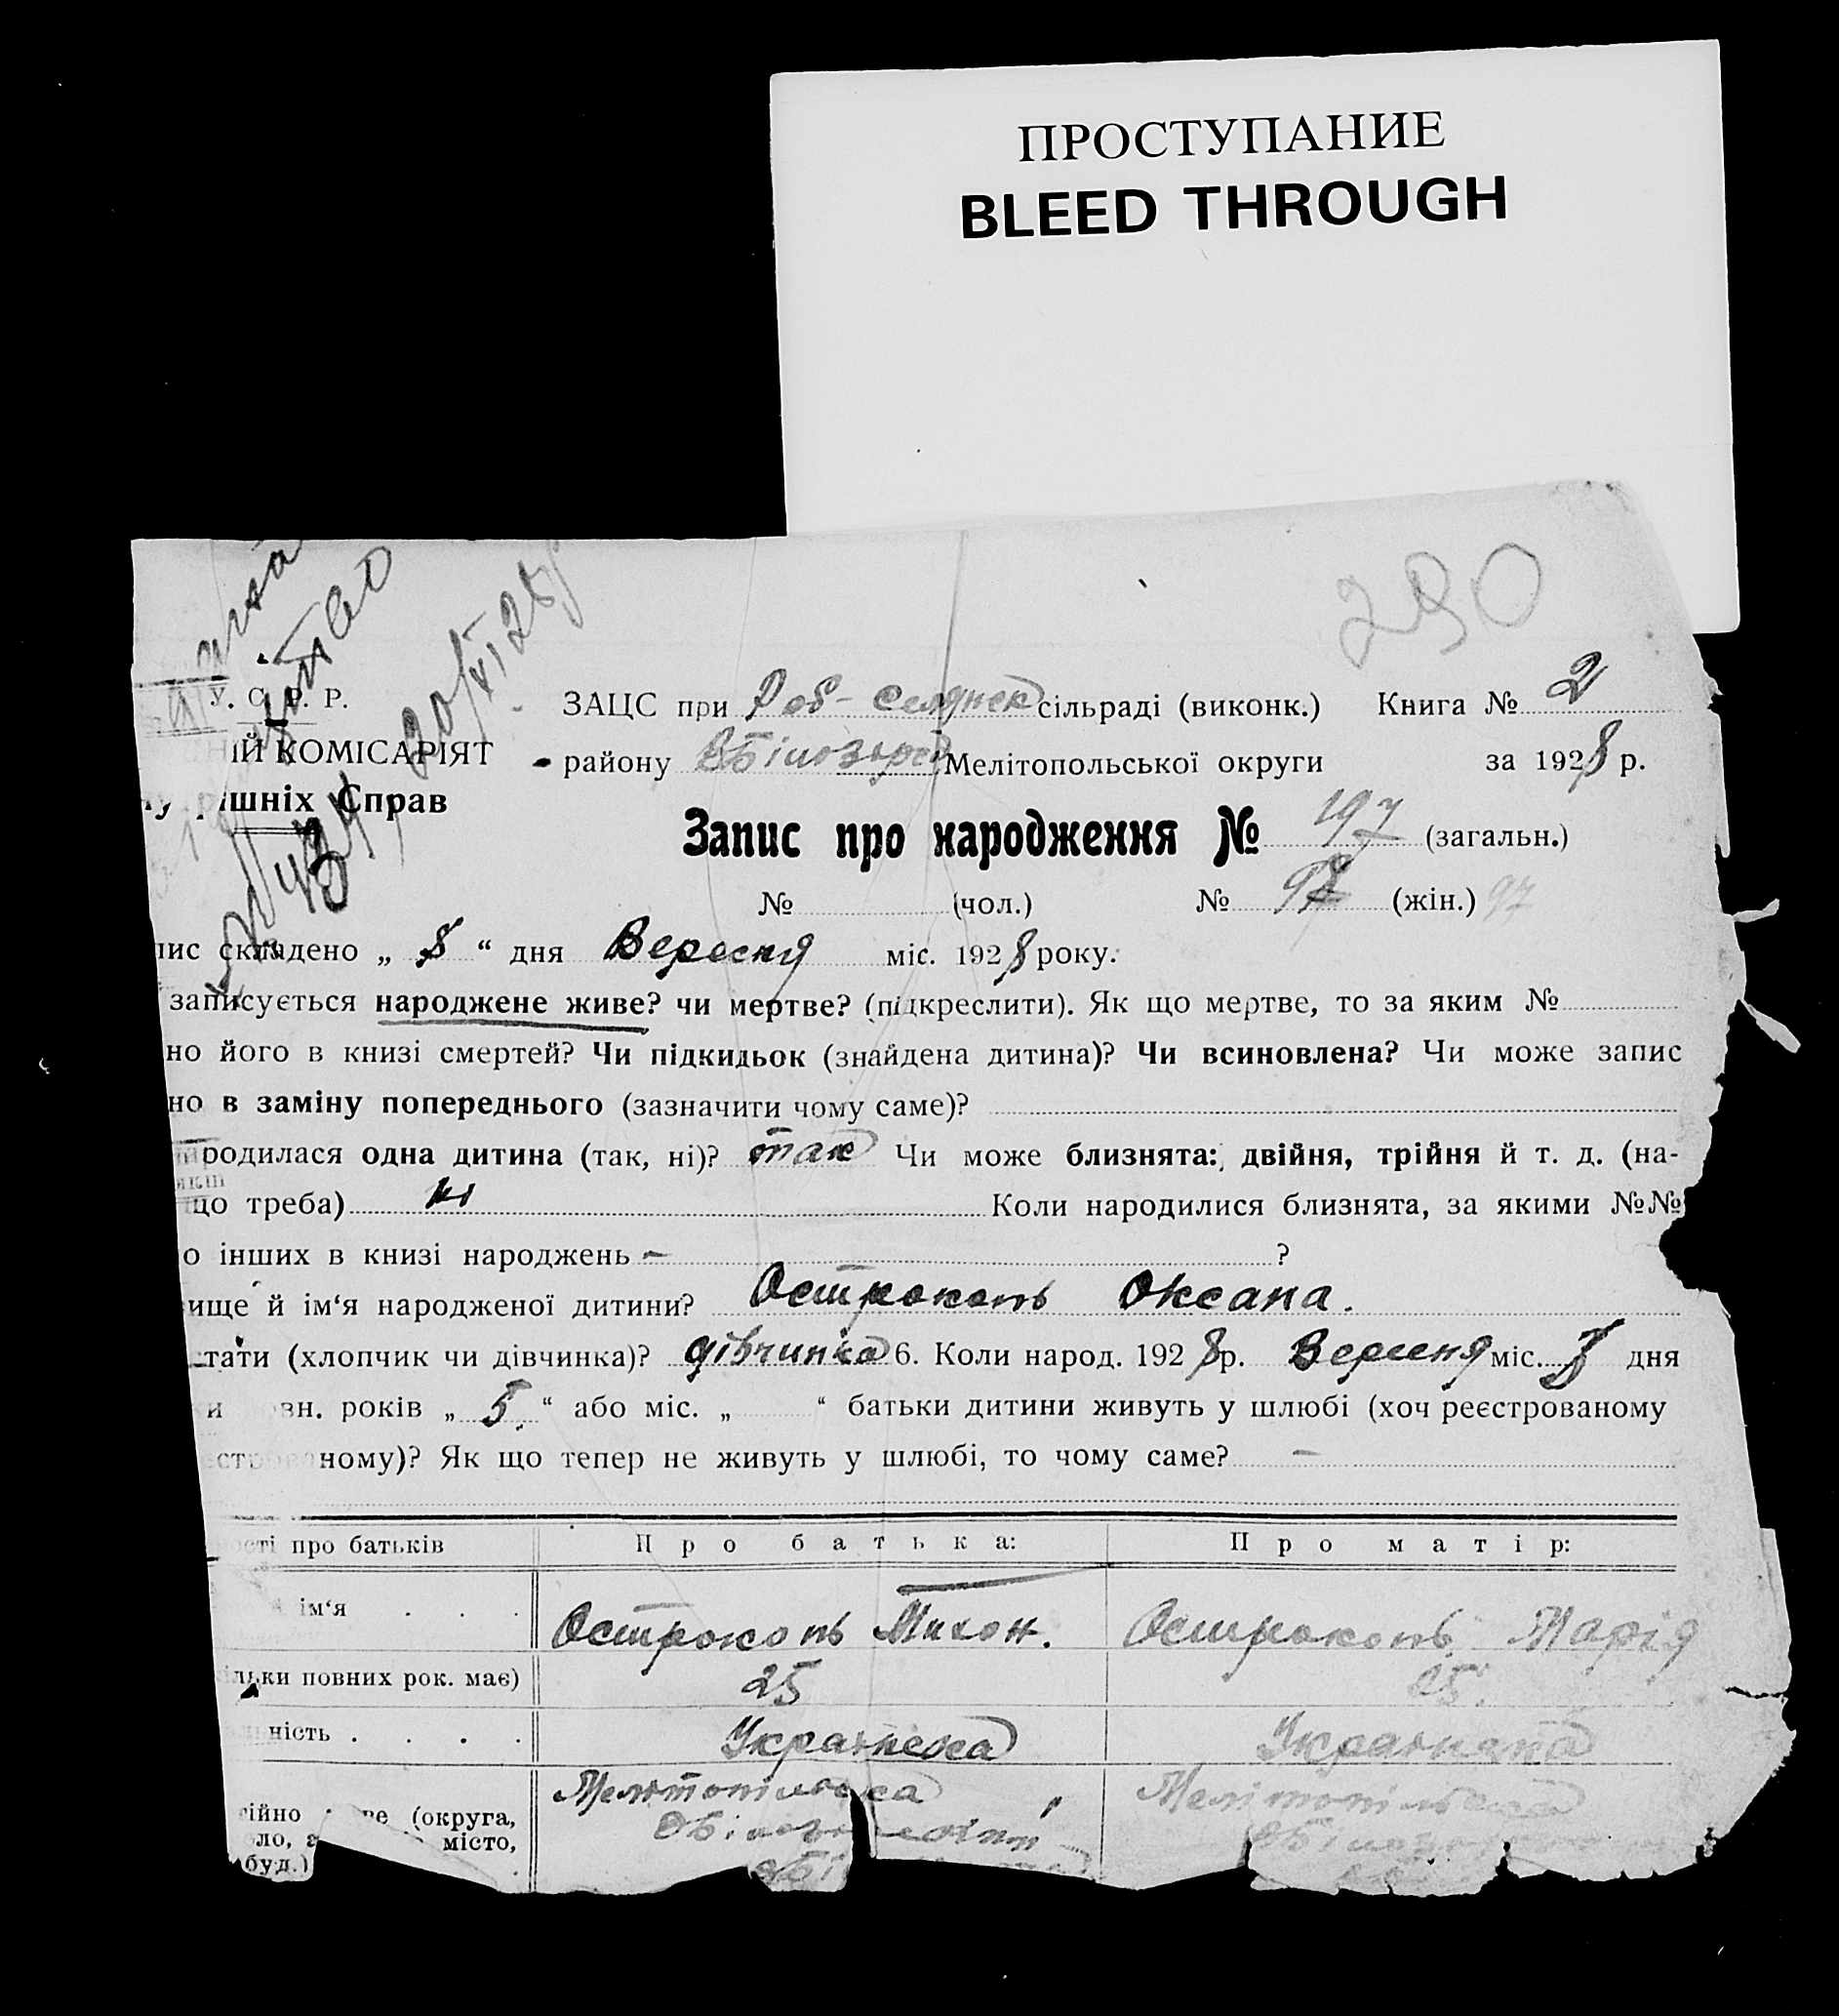 ПРОСТУПАНИЕ
BLEED THROUGH
290
У. С. Р. Р.
ЗАЦС при Роб-Селянск сільраді (виконк.) Книга № 2
НІЙ КОМІСАРІЯТ
району Мелітопольської округи за 1928 р.
рішніх Справ
Запис про народження № 197 (загальн.)
№ (чол.) № 97 (жін.) 97
пис складено „ 8 “ дня Вересня міс. 1928 року.
записується народжене живе? чи мертве? (підкреслити). Як що мертве, то за яким №
но його в книзі смертей? Чи підкидьок (знайдена дитина)? Чи всиновлена? Чи може запис
но в заміну попереднього (зазначити чому саме)?
родилася одна дитина (так, ні)? так Чи може близнята: двійня, трійня й т. д. (на-
що треба) ні Коли народилися близнята, за якими №№
о інших в книзі народжень — ?
ище й ім‘я народженої дитини? Остроконь Оксана.
стати (хлопчик чи дівчинка)? дівчинка 6. Коли народ. 1928 р. Вересня міс. 3 дня
и овн. років „ 5 “ або міс. „ “ батьки дитини живуть у шлюбі (хоч реєстрованому
ному)? Як що тепер не живуть у шлюбі, то чому саме? —
ості про батьків Про батька: Про матір:
й ім‘я . . . Остроконь Тихон. Остроконь Марія
ільки повних рок. має) 25 25.
ність . . . . Українська Українка
Мелітопільска Мелітопільска
ійно (округа,
ло, місто,
буд.)